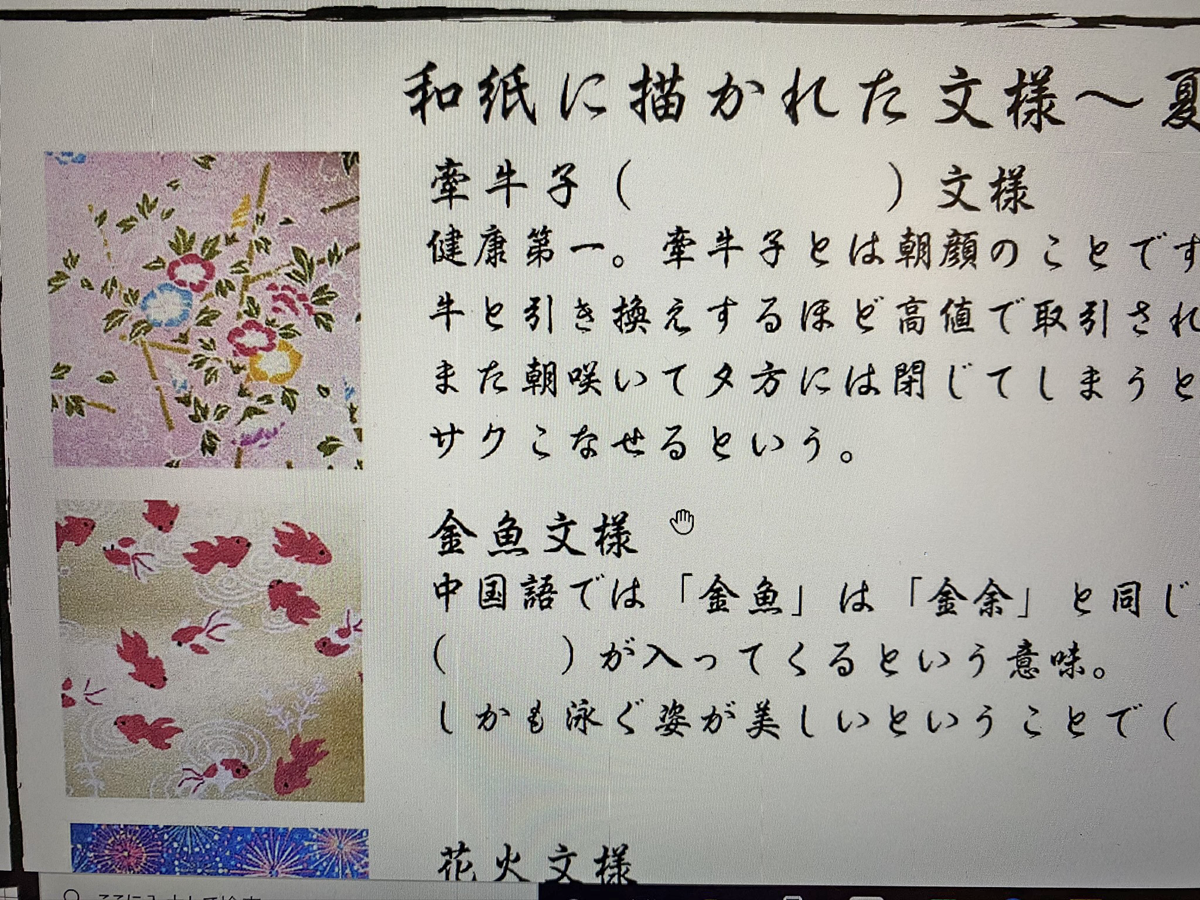 和紙に描かれた文様～夏
牽牛子（　　　　　）文様
健康第一。牽牛子とは朝顔のことです
牛と引き換えするほど高値で取引され
また朝咲いて夕方には閉じてしまうと
サクこなせるという。
金魚文様
中国語では「金魚」は「金余」と同じ
（　　）が入ってくるという意味。
しかも泳ぐ姿が美しいということで（
花火文様